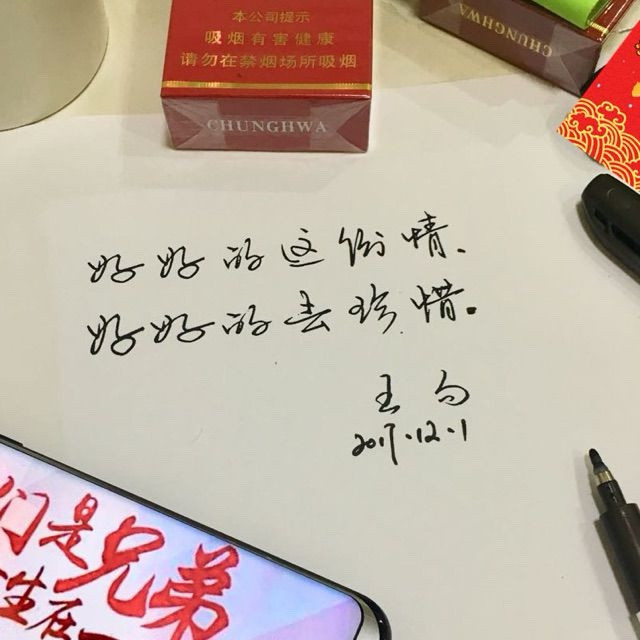 本公司提示
吸烟有害健康
请勿在禁烟场所吸烟
CHUNGHWA
CHUNGHWA
好好的这份情、
好好的去珍惜。
王勾
2017.12.1
们是兄弟
生在一